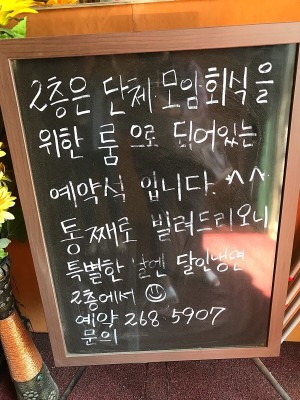 2층은 단체 모암 회식을
위한 룸으로 되어있는
예약석 입니다. ^^
통째로 빌려드리오니
특별한 날엔 달인냉면
2층에서 ☺
예약 268 5907
문의